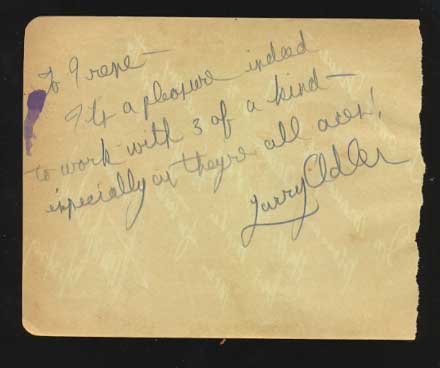 To Irene —
It's a pleasure indeed
to work with 3 of a kind —
especially as they're all aces!
Larry Adler